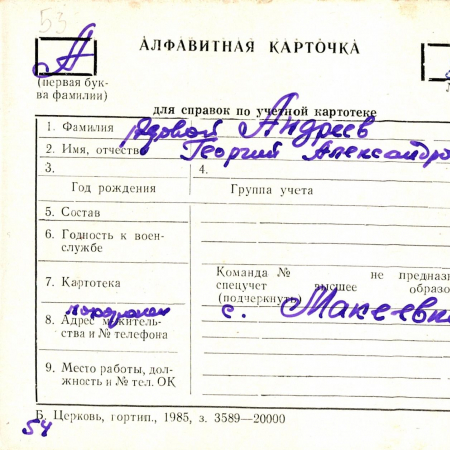 53
А
АЛФАВИТНАЯ КАРТОЧКА
(первая бук-
ва фамилии)
для справок по учетной картотеке
1. Фамилия рядовой Андреев
2. Имя, отчество Георгий Александро
3.
Год рождения
4.
Группа учета
5. Состав
6. Годность к воен-
службе
7. Картотека
Команда № не предназн
спецучет высшее образо
(подчеркнуть)
похоронен
8. Адрес жительс-
тва и № телефона
с. Макеевка
9. Место работы, дол-
жность и № тел. ОК
Б. Церковь, гортип., 1985, з. 3589—20000
54